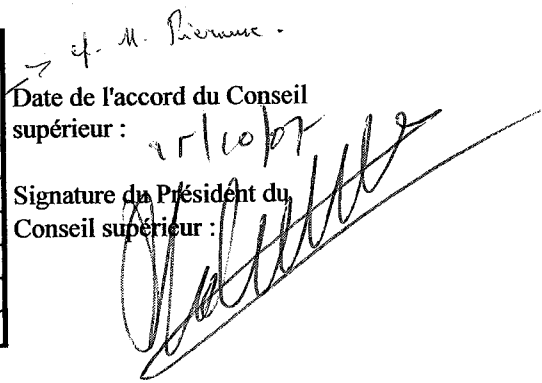 → cf. M.
Date de l'accord du Conseil
supérieur :
25/10/07
Signature du Président du
Conseil supérieur :